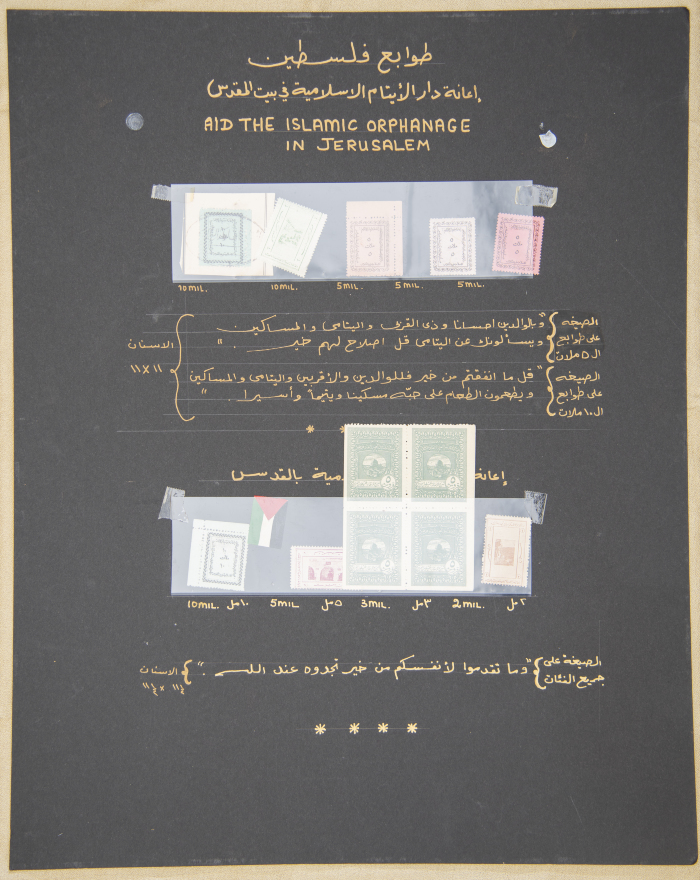 طوابع فلسطين
إعانة دار الأيتام الاسلامية في بيت المقدس
AID THE ISLAMIC ORPHANAGE
IN JERUSALEM
10 MIL. 10 MIL. 5 MIL. 5 MIL. 5 MIL.
الصيغه على طوابع ال ٥ ملات
"وبالوالدين احسانا وذي القربى واليتامى والمساكين
ويسألونك عن اليتامى قل اصلاح لهم خير . "
الصيغه على طوابع ال ١٠ ملات
"قل ما انفقتم من خير فللوالدين والأقربين واليتامى والمساكين
ويطعمون الطعام على حبّه مسكينا ويتيماً وأسيرا . "
الاسنان
١١ X ١١
* *
إعانة مية بالقدس
10 MIL. ١٠ مل 5 MIL ٥ مل 3 MIL. ٣ مل 2 MIL. ٢ مل
الصيغة على
جميع الفئات
"وما تقدموا لأنفسكم من خير تجدوه عند الله . "
الاسنان
١١½ x ١١½
* * * *